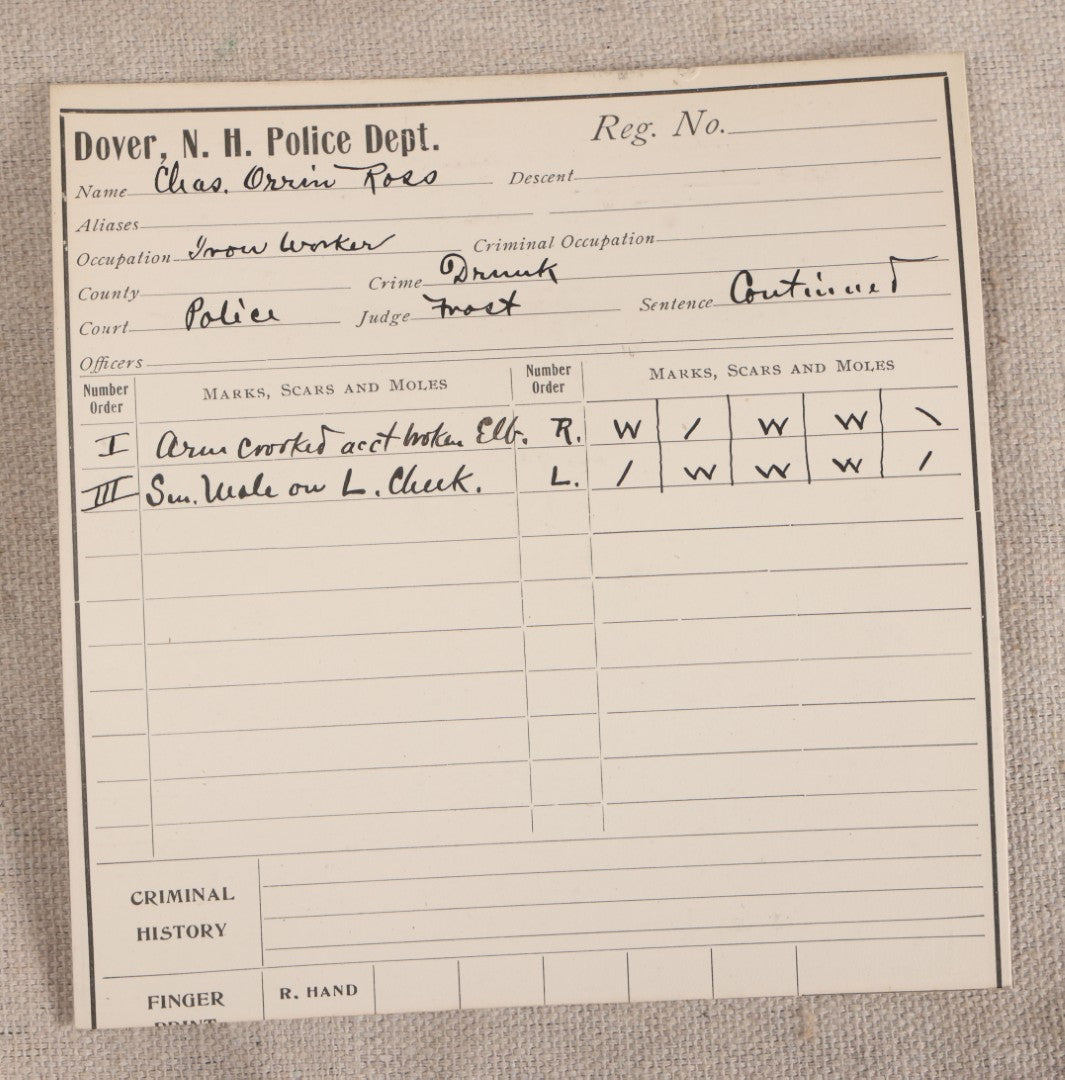 Dover, N. H. Police Dept. Reg. No.
Name Chas. Orrin Ross Descent
Aliases
Occupation Iron Worker Criminal Occupation
County Crime Drunk
Court Police Judge Frost Sentence Continued
Officers
Number Order MARKS, SCARS AND MOLES Number Order MARKS, SCARS AND MOLES
I Arm crooked acct broken Elb. R. W / W W \
III Sm. Mole on L. Cheek. L. / W W W /
CRIMINAL
HISTORY
FINGER R. HAND
PRINT